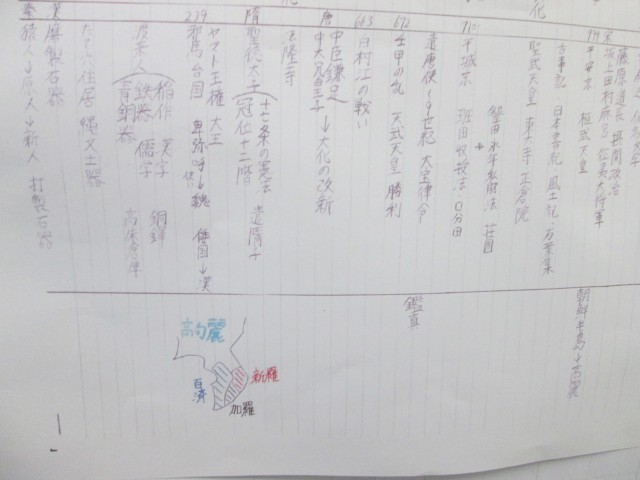 秦
猿人→原人→新人 打製石器
漢
磨製石器
たて穴住居 縄文土器
渡来人
稲作 漢字
鉄器 儒学
青銅器
銅鐸
239
邪馬台国 卑弥呼→魏 倭国→漢
ヤマト王権 大王
隋
聖徳太子
十七条の憲法
冠位十二階
遣隋使
法隆寺
唐
中大兄皇子
中臣鎌足
→大化の改新
663
白村江の戦い
672
壬申の乱 天武天皇 勝利
大宝律令
710
平城京 班田収授法・口分田
墾田永年私財法 荘園
聖武天皇 東大寺 正倉院
古事記・日本書紀・風土記・万葉集
794
平安京 桓武天皇
坂上田村麻呂 征夷大将軍
藤原道長 摂関政治
鑑真
高句麗
新羅
百済
加羅